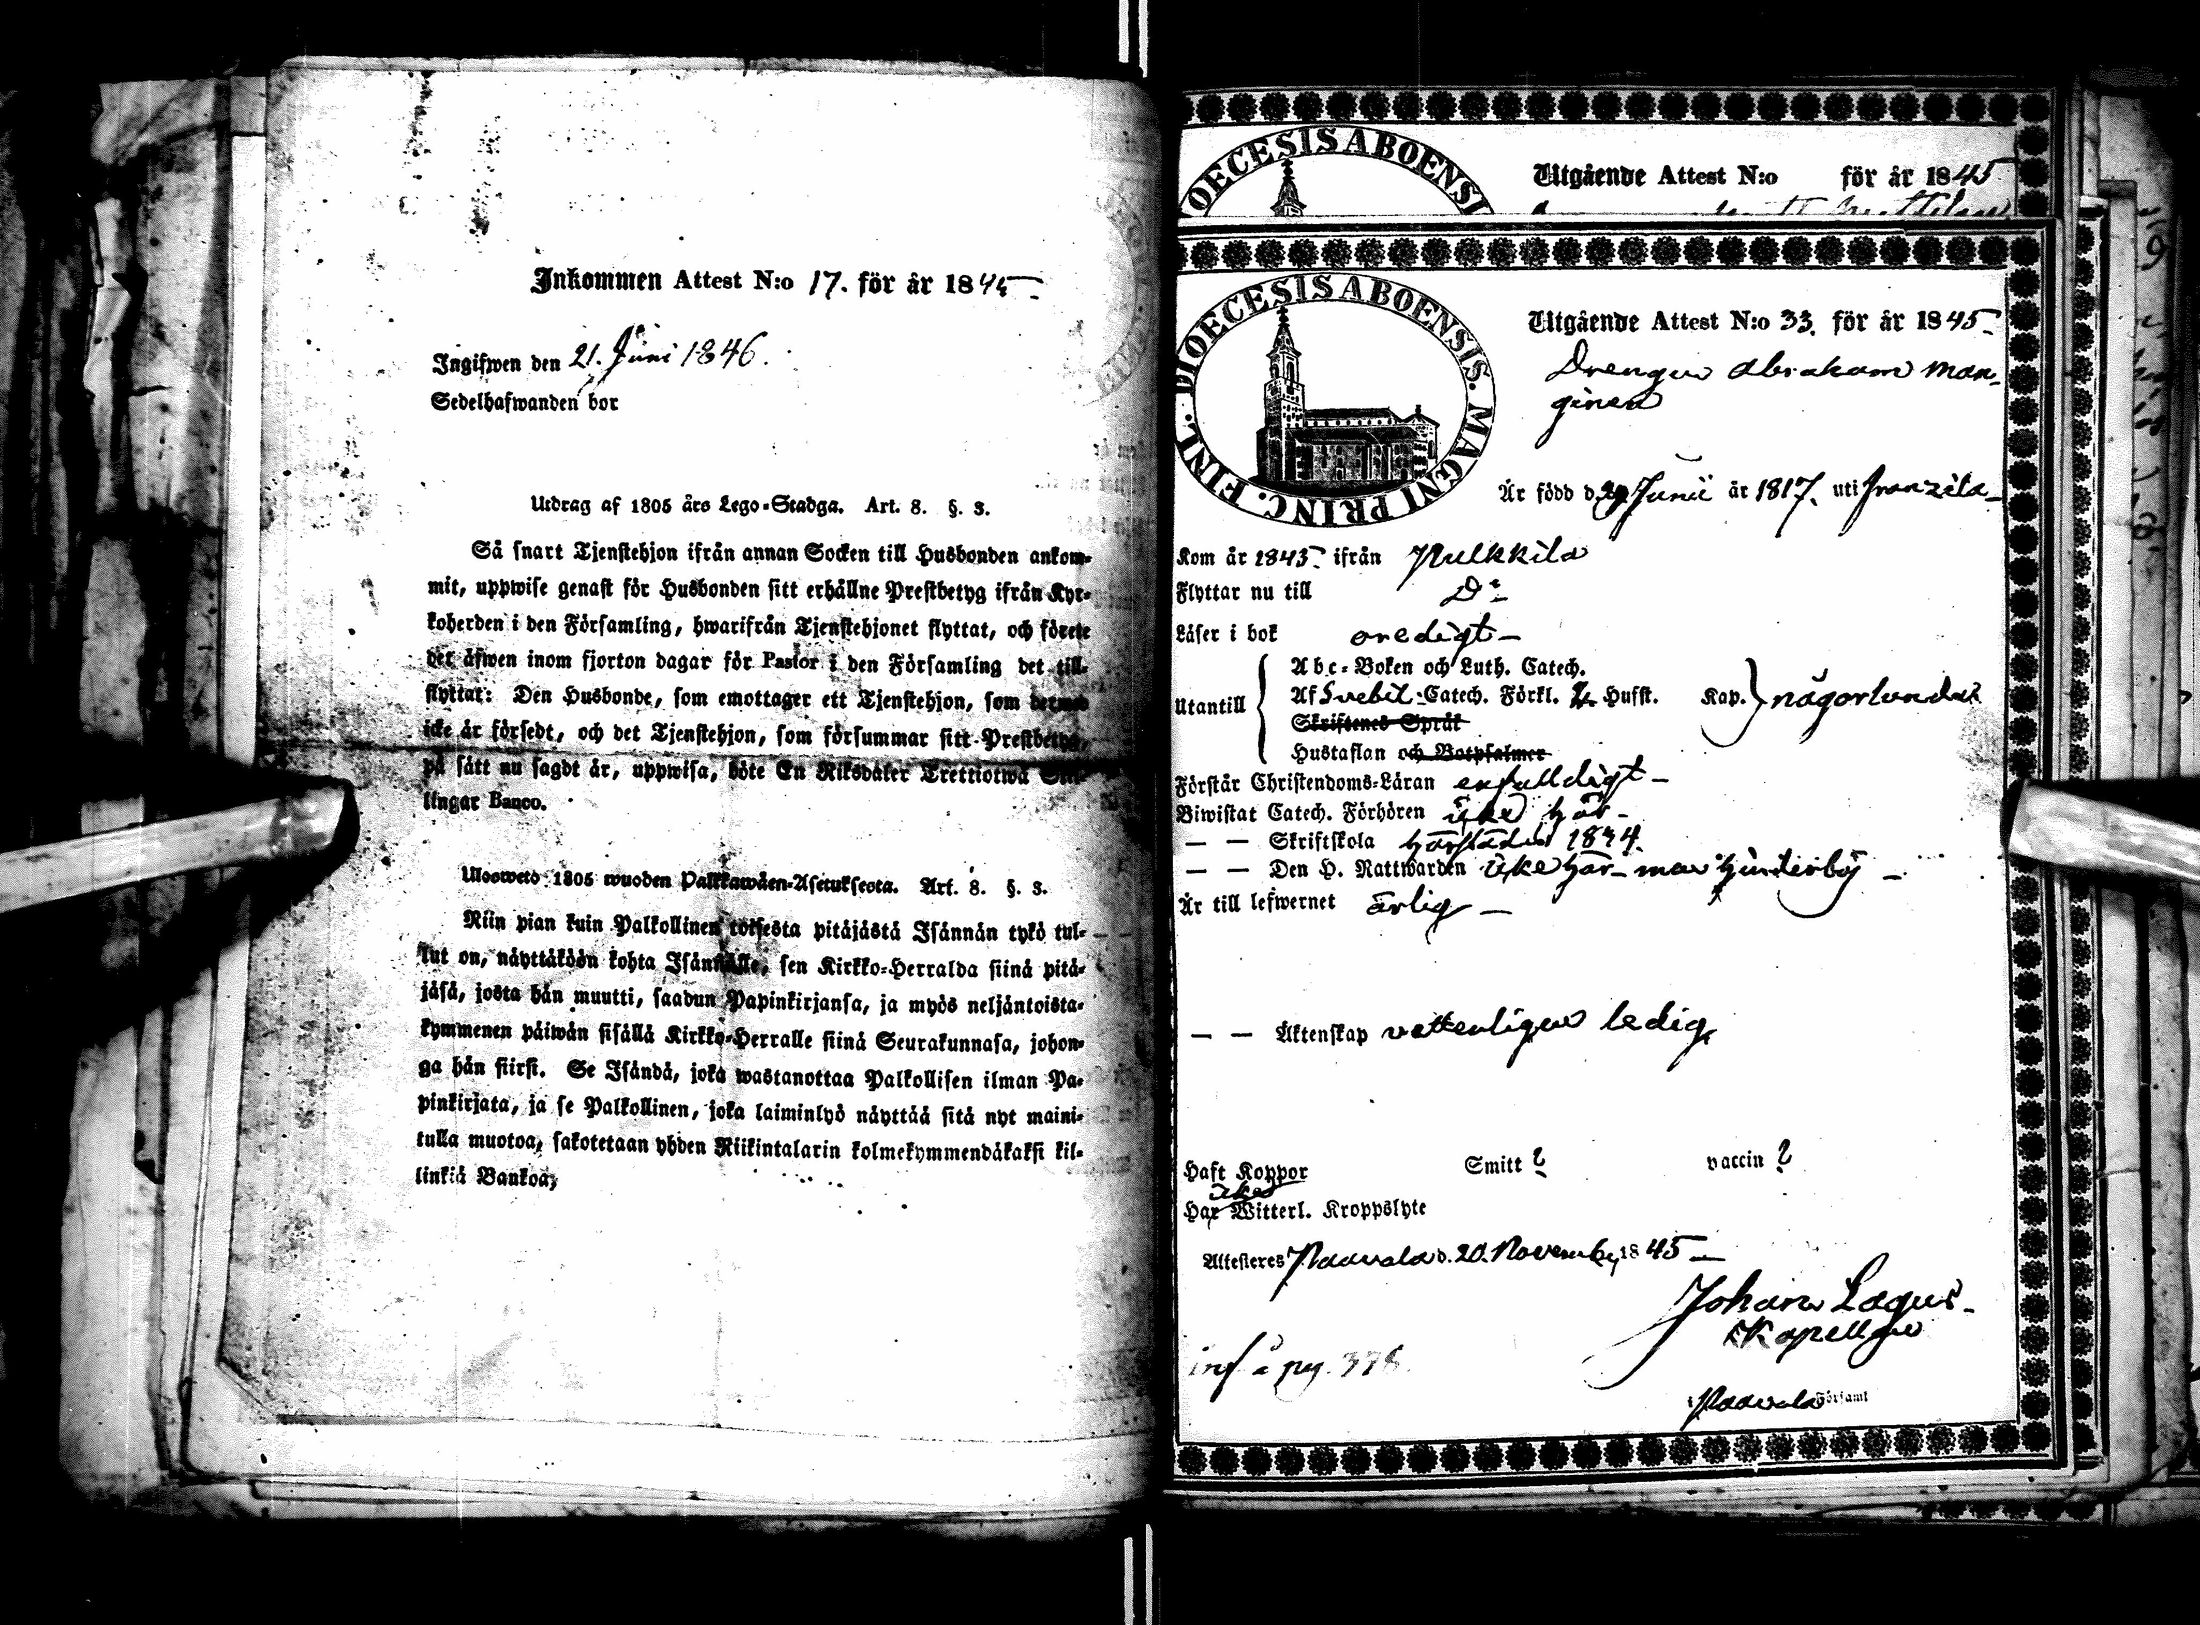 Inkommen Attest N:o 17. för år 1845
Ingifwen den 21. Juni 1846.
Sedelhafwanden bor
Utdrag af 1805 års Lego-Stadga. Art. 8. §. 3.
Så snart Tjenstehjon ifrån annan Socken till Husbonden ankom-
mit, uppwise genast för Husbonden sitt erhållne Prestbetyg ifrån Kyr-
koherden i den Församling, hwarifrån Tjenstehjonet flyttat, och förete
det äfwen inom fjorton dagar för Pastor i den Församling det till-
flyttat: Den Husbonde, som emottager ett Tjenstehjon, som dermed
icke är försedt, och det Tjenstehjon, som försummar sitt Prestbetyg,
på sätt nu sagdt är, uppwisa, böte En Riksdaler Trettiotwå Skil-
lingar Banco.
Ulosweto 1805 wuoden Palkkawäen-Asetuksesta. Art. 8. §. 3.
Niin pian kuin Palkollinen toisesta pitäjästä Isännän tykö tul-
lut on, näyttäköön kohta Isännälle, sen Kirkko-Herralda siinä pitä-
jäsä, josta hän muutti, saadun Papinkirjansa, ja myös neljäntoista-
kymmenen päiwän sisällä Kirkko-Herralle siinä Seurakunnasa, johon-
ga hän siirsi. Se Isändä, joka wastanottaa Palkollisen ilman Pa-
pinkirjata, ja se Palkollinen, joka laiminlyö näyttää sitä nyt maini-
tulla muotoa, sakotetaan yhden Riikintalarin kolmekymmendäkaksi kil-
linkiä Bankoa,
DIOECESIS ABOENSI
Utgående Attest N:o för år 1845
DIOECESIS ABOENSIS. MAGNI PRINC. FINL.
Utgående Attest N:o 33. för år 1845
Drengen Abraham Man-
ginen
Är född d. 29 Junii år 1817. uti Franzila
Kom år 1843 ifrån Pulkkila
Flyttar nu till Do
Läser i bok oredigt
Abc-Boken och Luth. Catech.
Utantill Af Svebil. Catech. Förkl. Husst. Kap. någorlunda
Skriftenes Språk
Hustaflan och Botpsalmer
Förstår Christendoms-Läran enfalldigt
Biwistat Catech. Förhören icke här
— — Skriftskola härstädes 1844.
— — Den H. Nattwarden icke här men hinderlöj
Är till lefwernet ärlig
— — Äktenskap vetterligen ledig
Haft Koppor Smitt ? vaccin ?
icke
Har Witterl. Kroppslyte
Attesteres Paavola d. 20. November 1845
Johan Lagus
Kapellan
inf å pag. 378.
i Paavola Församl